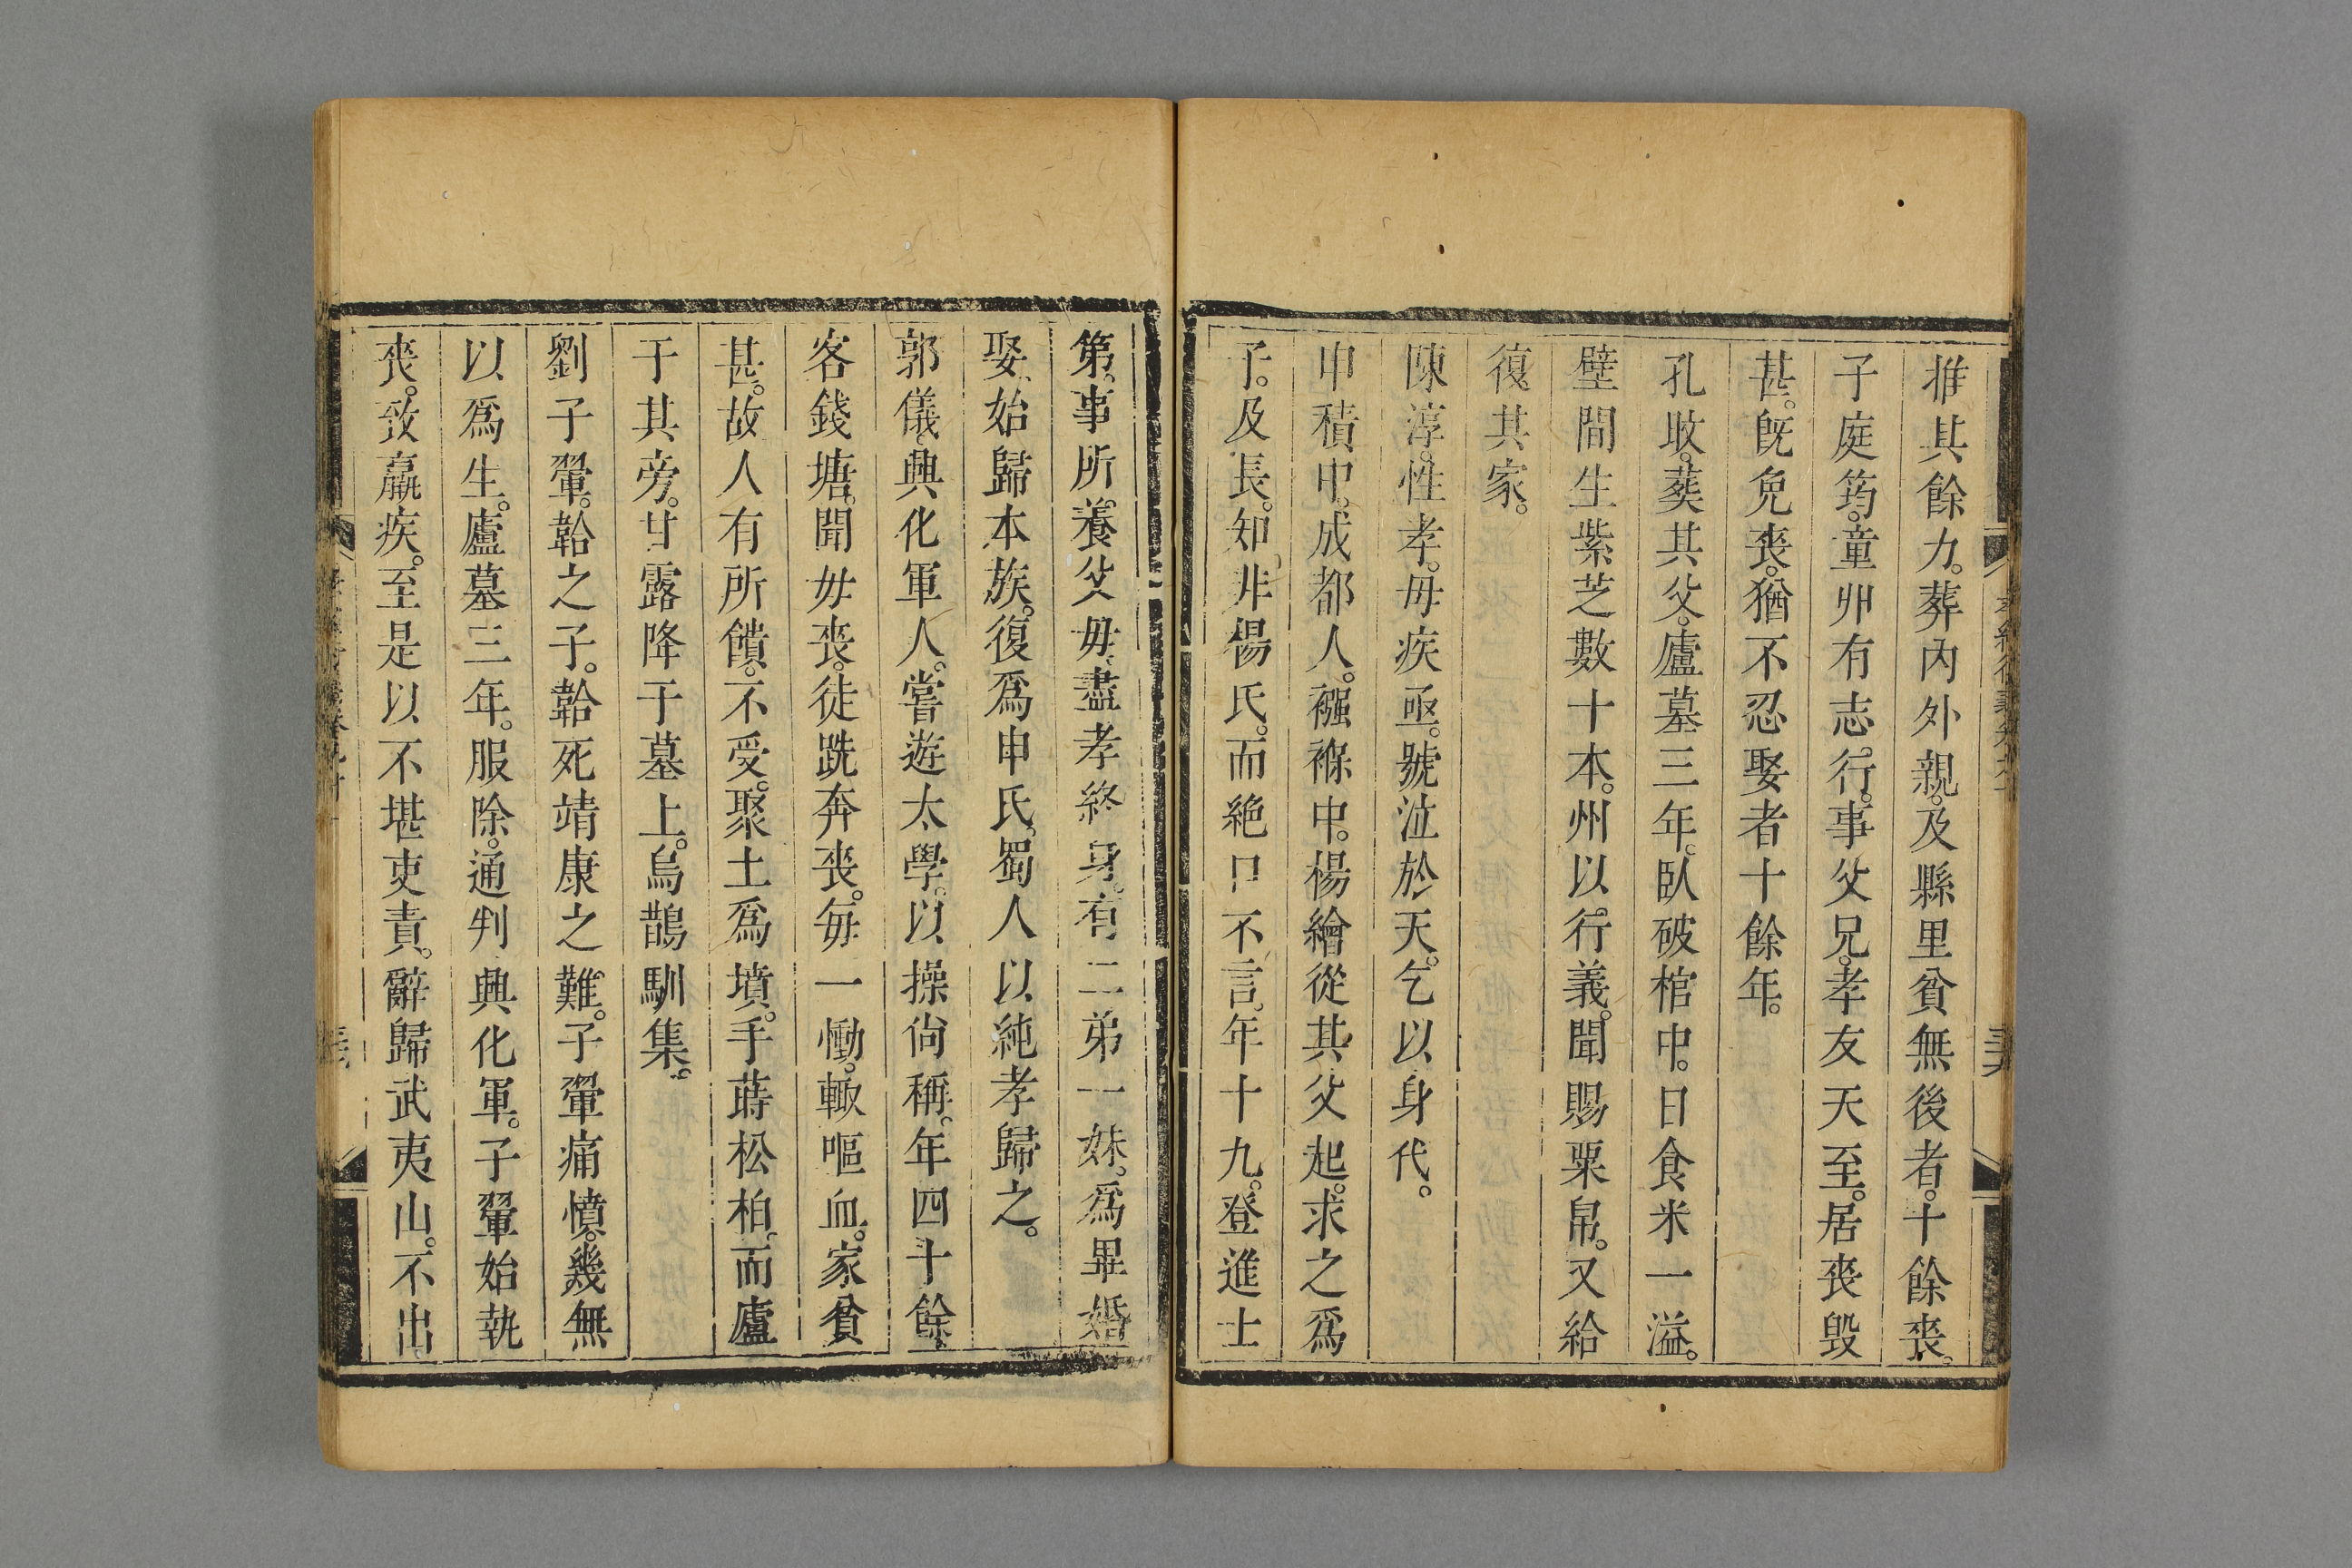 推其餘力。葬內外親。及縣里貧無後者。十餘喪。
子庭筠。童丱有志行。事父兄。孝友天至。居喪毀
甚。旣免喪。猶不忍娶者十餘年。
孔旼。葬其父。廬墓三年。臥破棺中。日食米一溢。
壁間生紫芝數十本。州以行義。聞賜粟帛。又給
復其家。
陳淳。性孝。母疾亟。號泣於天。乞以身代。
申積中。成都人。襁褓中。楊繪從其父起。求之爲
子。及長。知非楊氏。而絶口不言。年十九。登進士
第。事所養父母。盡孝終身。有二弟一妹。爲畢婚
娶。始歸本族。復爲申氏。蜀人以純孝歸之。
郭儀。興化軍人。嘗遊太學。以操尙稱。年四十餘
客錢塘。聞母喪。徒跣奔喪。每一慟。輒嘔血。家貧
甚。故人有所饋。不受。聚土爲墳。手蒔松柏。而廬
于其旁。甘露降于墓上。烏鵲馴集。
劉子翬。韐之子。韐死靖康之難。子翬痛憤。幾無
以爲生。廬墓三年。服除。通判興化軍。子翬始執
喪。致羸疾。至是以不堪吏責。辭歸武夷山。不出